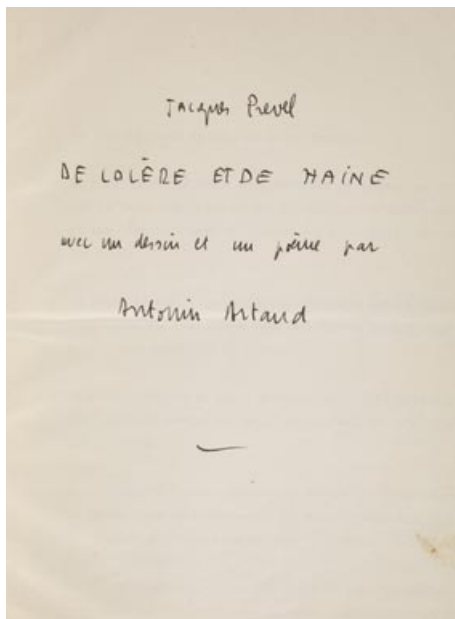 Jacques Prevel
DE COLÈRE ET DE HAINE
avec un dessin et un poème par
Antonin Artaud